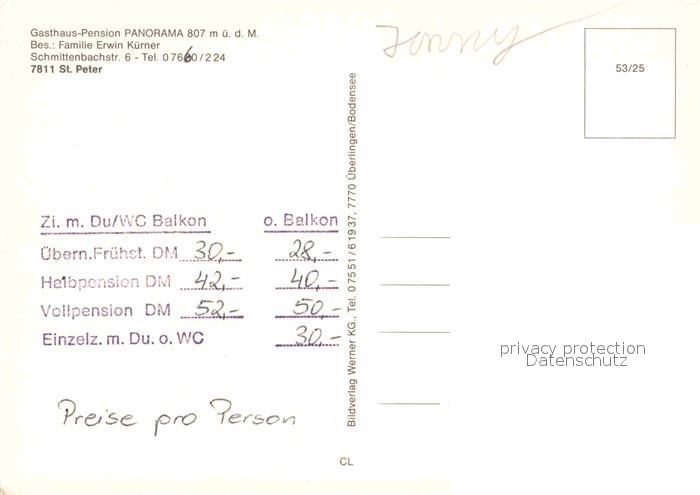 Gasthaus-Pension PANORAMA 807 m ü. d. M.
Bes.: Familie Erwin Kürner
Schmittenbachstr. 6 - Tel. 07660/224
7811 St. Peter
53/25
Zi. m. Du/WC Balkon o. Balkon
Übern.Frühst. DM 30,- 28,-
Halbpension DM 42,- 40,-
Vollpension DM 52,- 50,-
Einzelz. m. Du. o. WC 30,-
Preise pro Person
Bildverlag Werner KG., Tel. 07551/61937, 7770 Überlingen/Bodensee
CL
privacy protection
Datenschutz